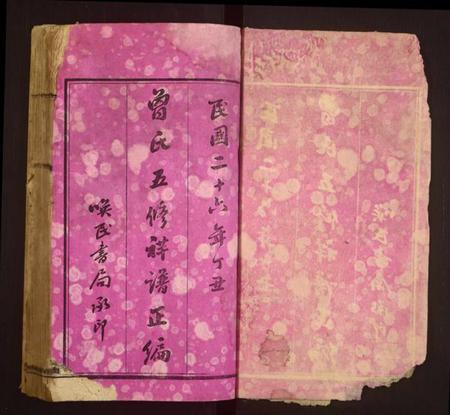 民國二十六年丁丑
曾氏五修祥譜正編
喚民書局承印